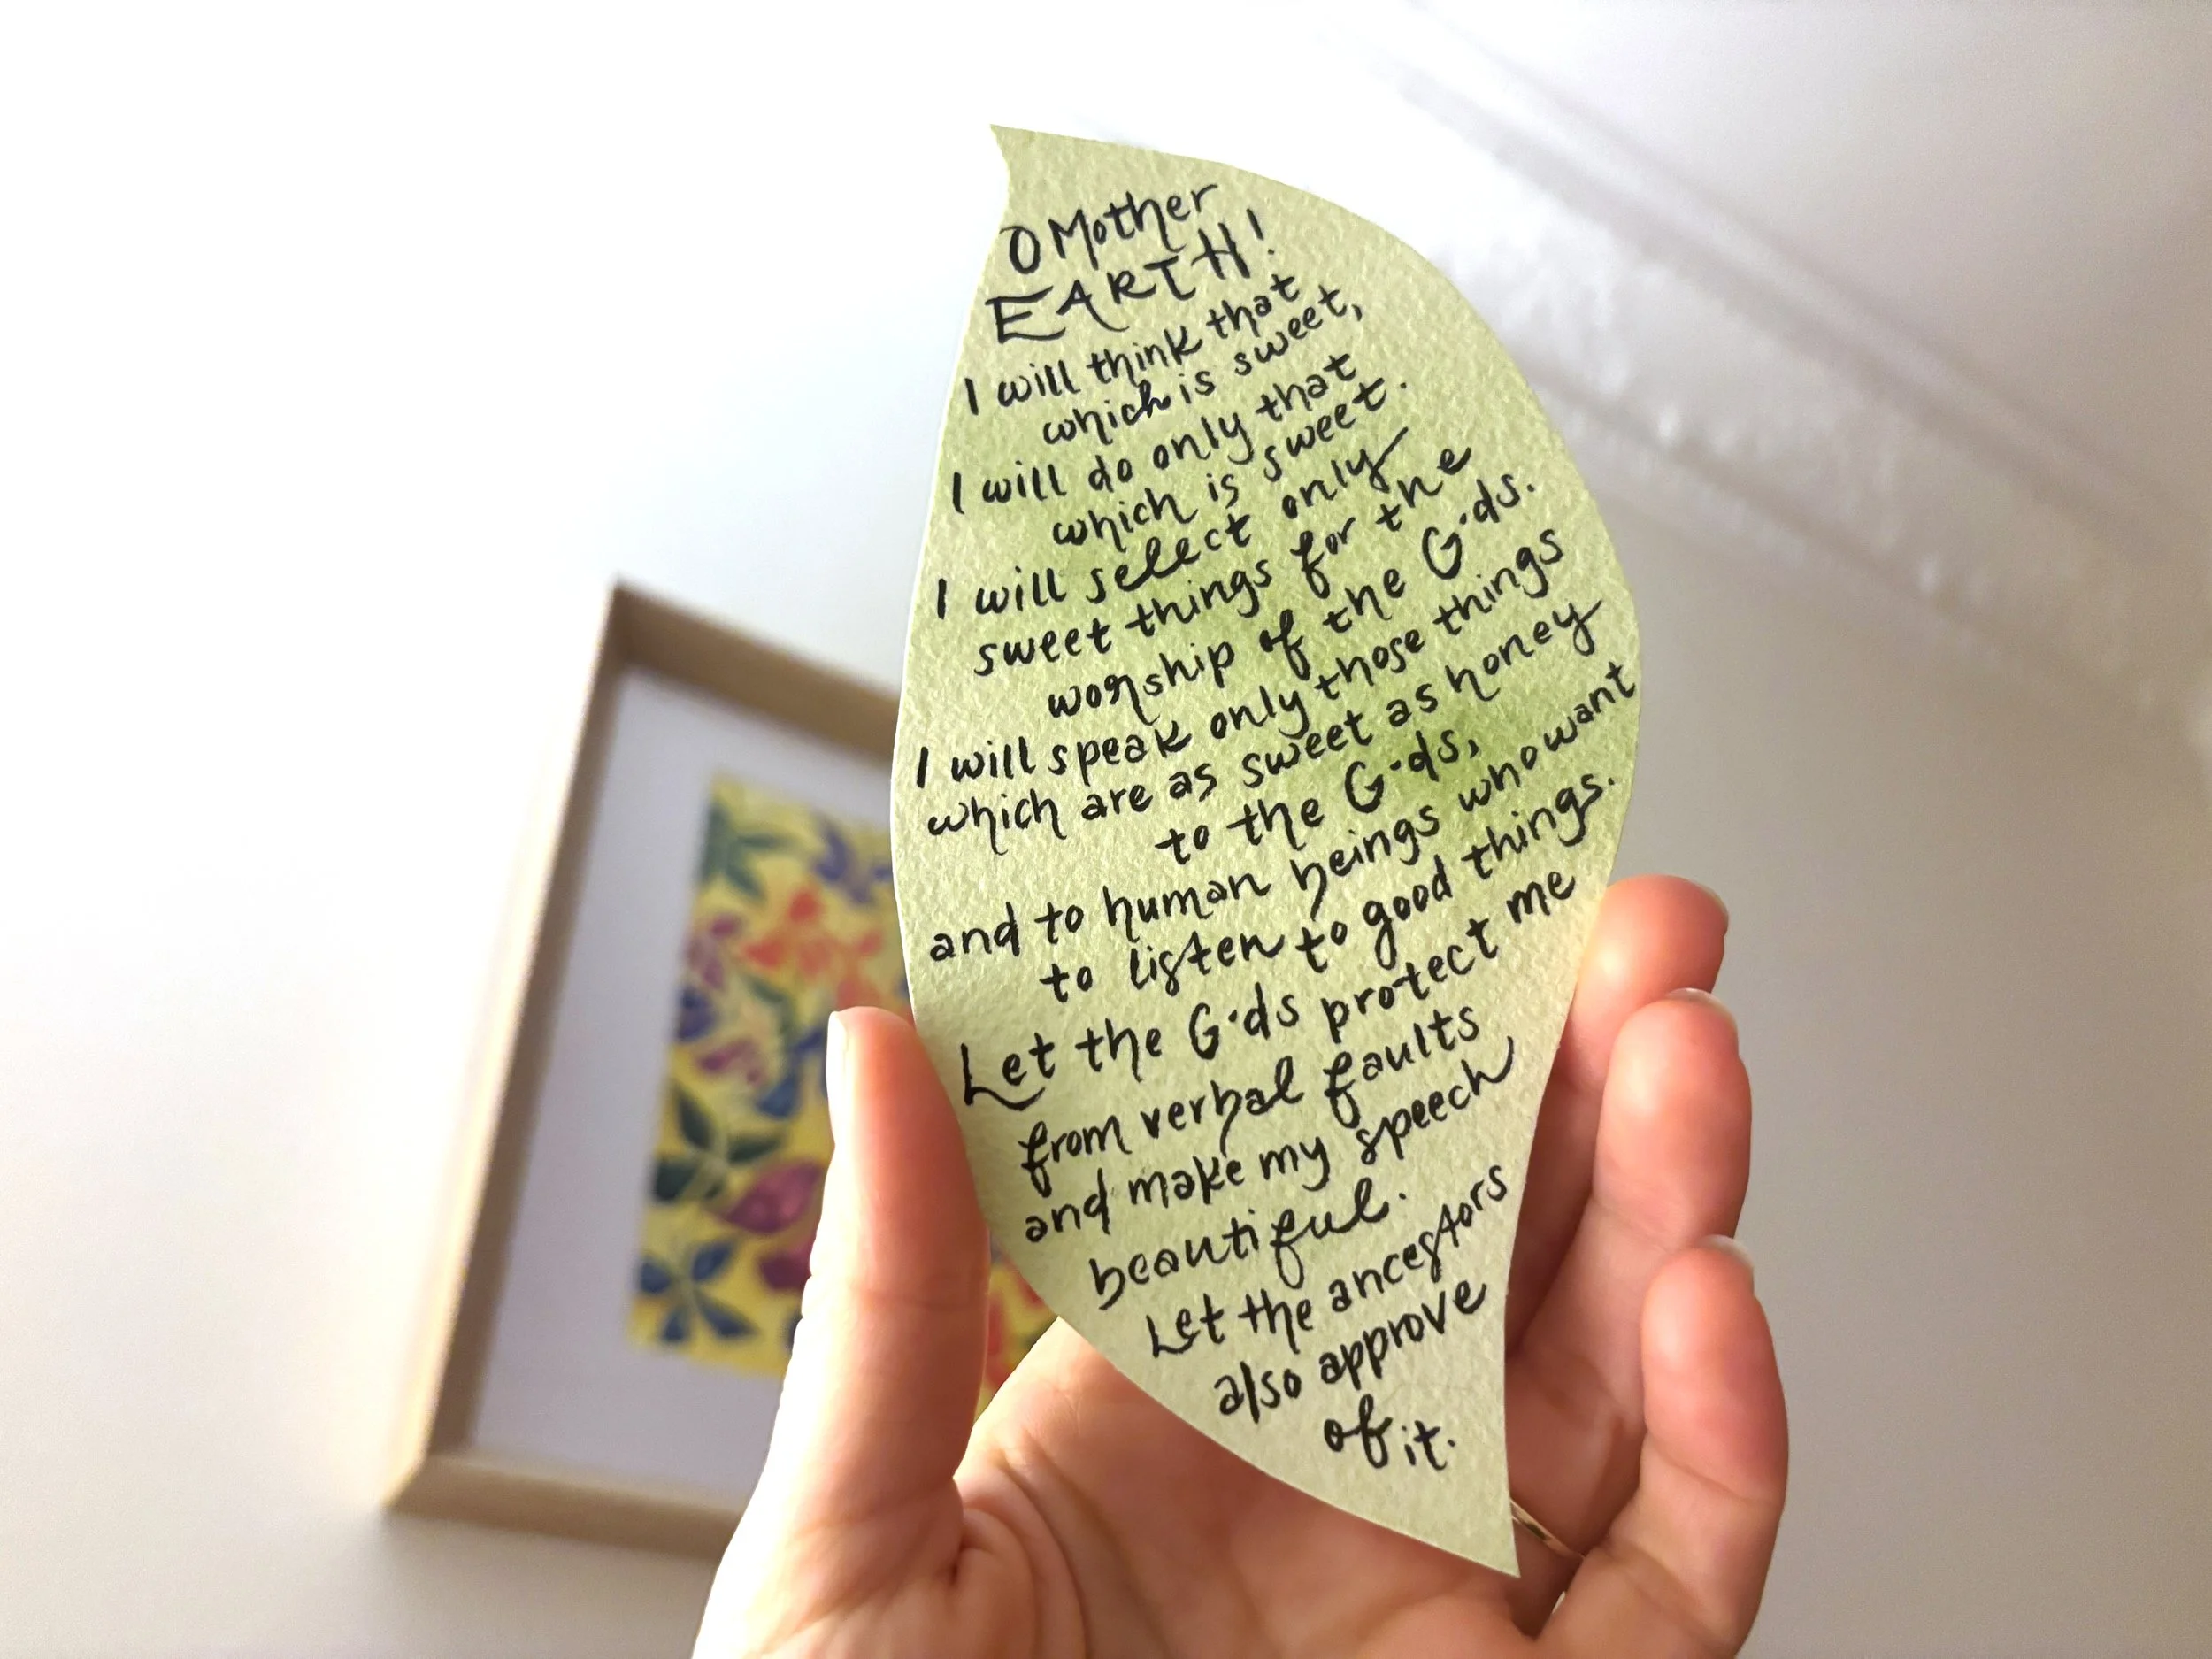 O Mother
EARTH!
I will think that
which is sweet,
I will do only that
which is sweet.
I will select only
sweet things for the
worship of the G·ds.
I will speak only those things
which are as sweet as honey
to the G·ds,
and to human beings who want
to listen to good things.
Let the G·ds protect me
from verbal faults
and make my speech
beautiful.
Let the ancestors
also approve
of it.